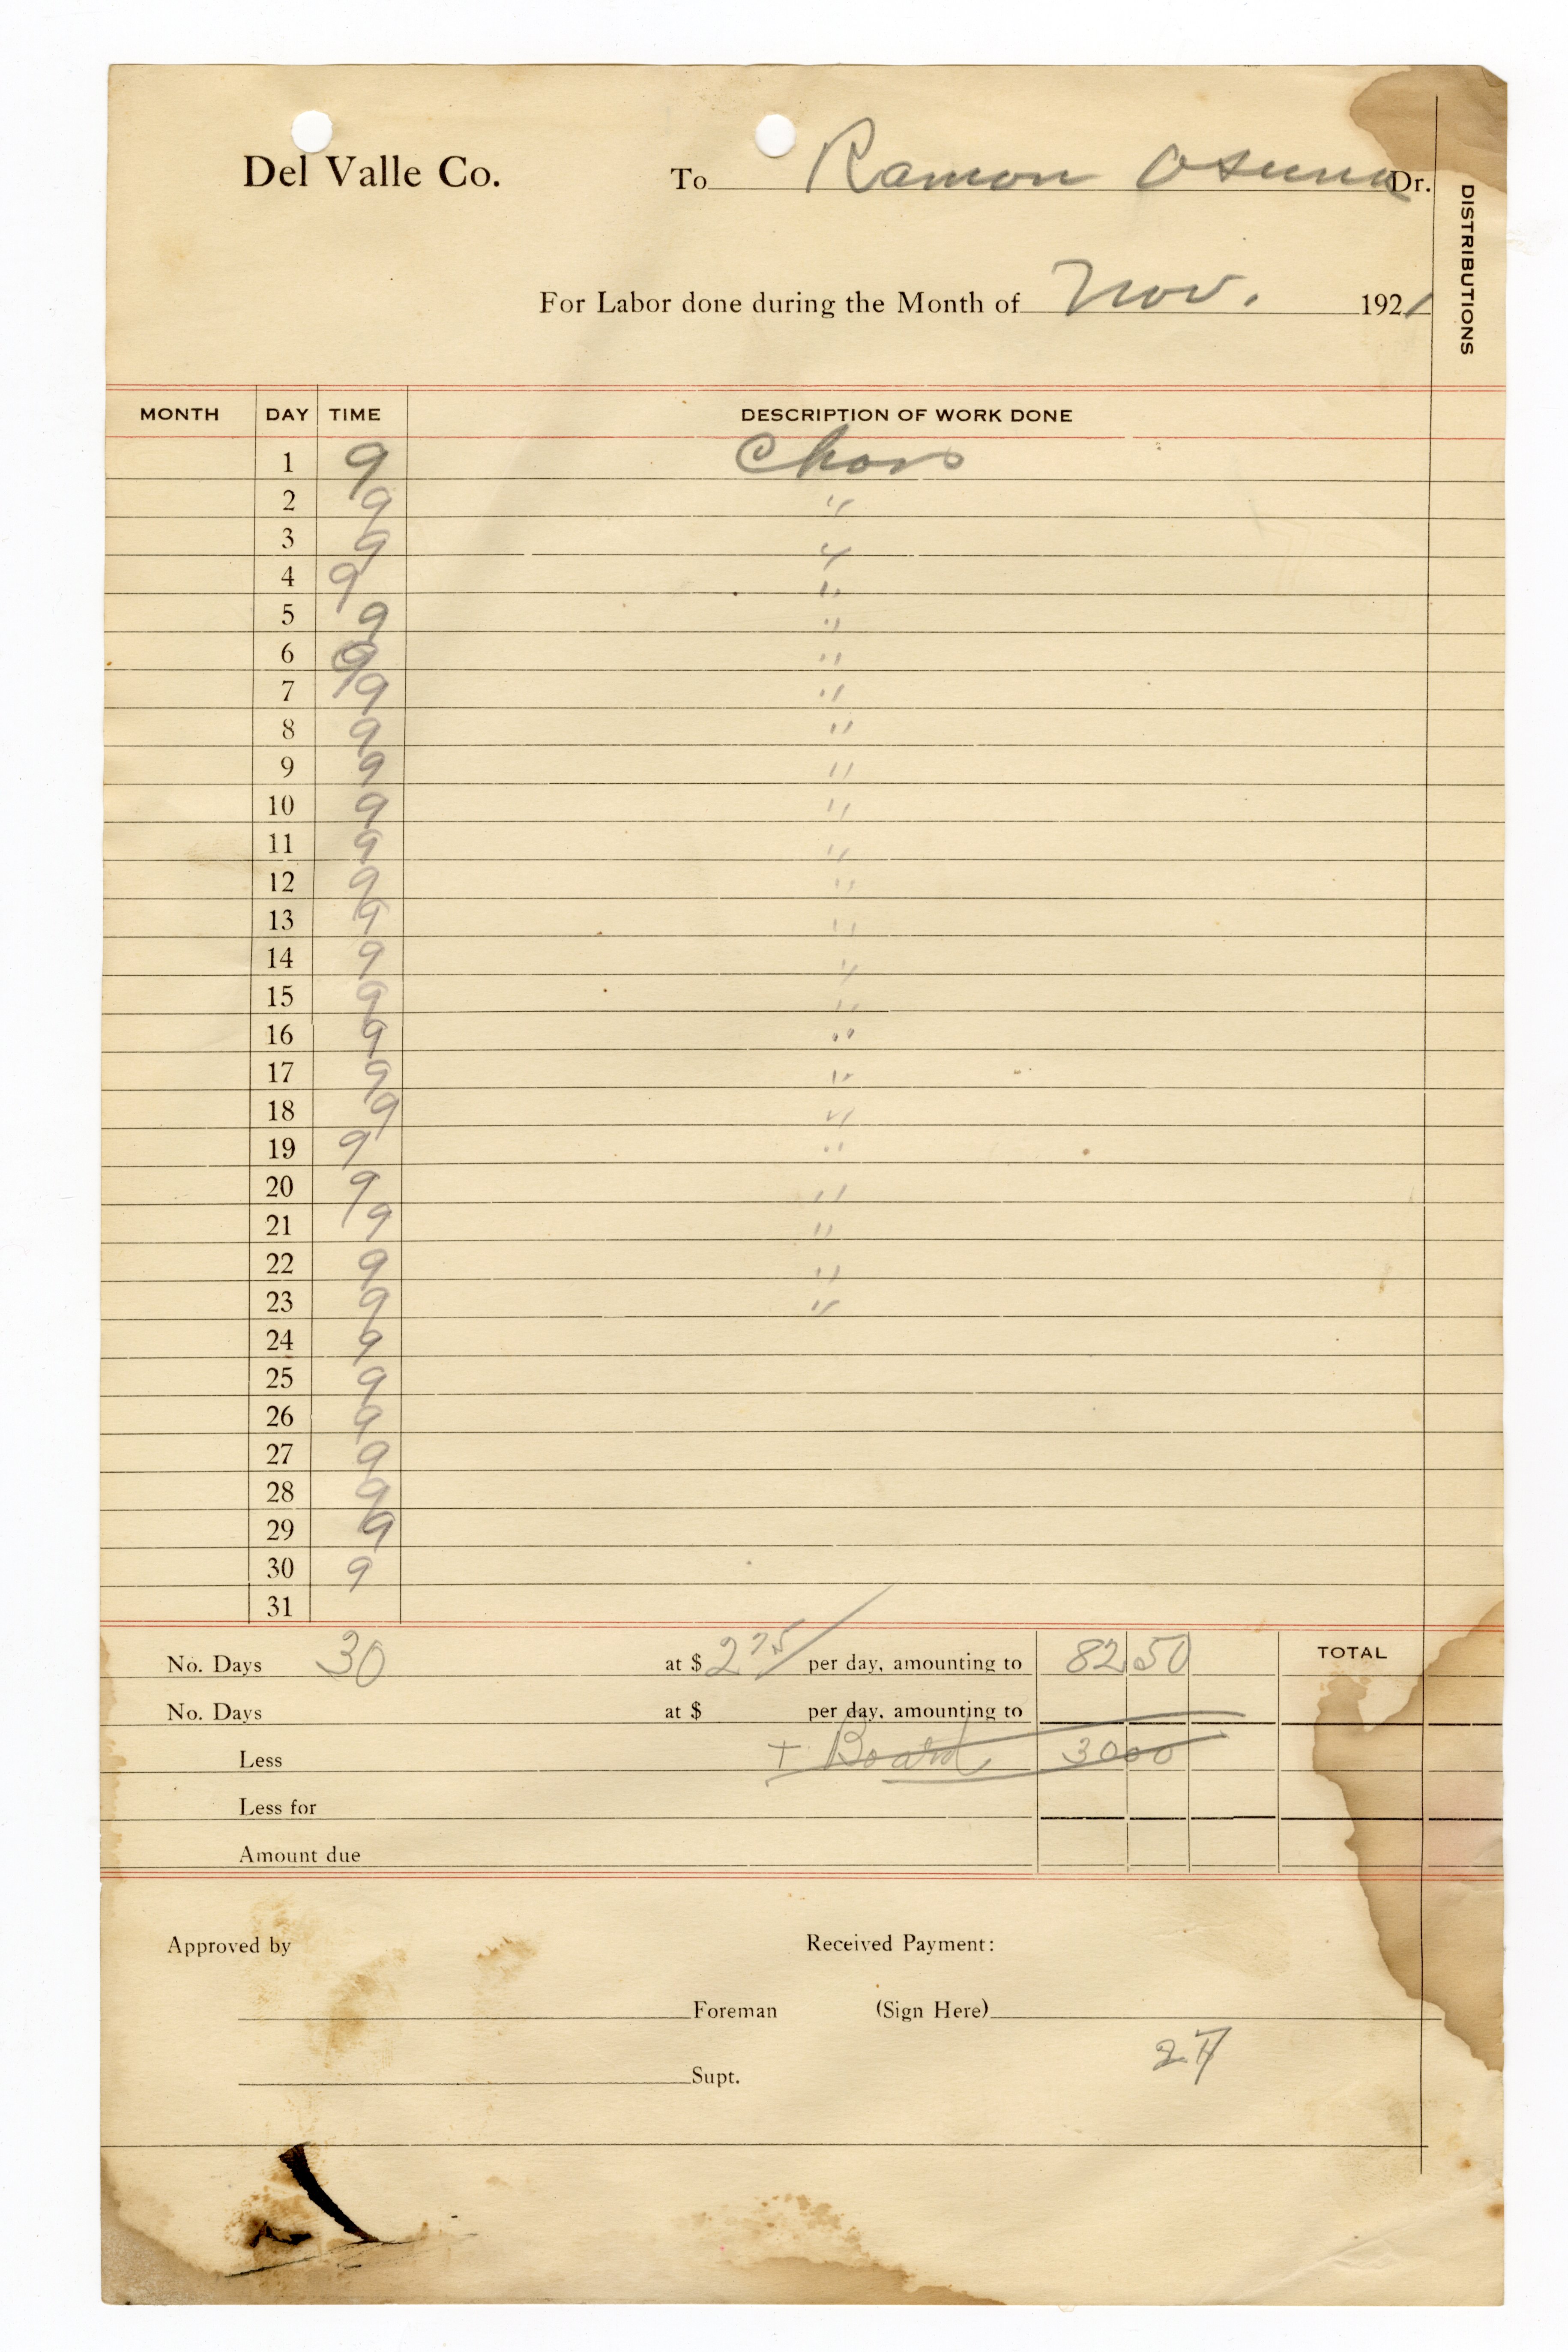 Del Valle Co. To Ramon Osuna Dr.
DISTRIBUTIONS
For Labor done during the Month of Nov. 1921
MONTH DAY TIME DESCRIPTION OF WORK DONE
1 9 Chors
2 9 "
3 9 "
4 9 "
5 9 "
6 9 "
7 9 "
8 9 "
9 9 "
10 9 "
11 9 "
12 9 "
13 9 "
14 9 "
15 9 "
16 9 "
17 9 "
18 9 "
19 9 "
20 9 "
21 9 "
22 9 "
23 9 "
24 9
25 9
26 9
27 9
28 9
29 9
30 9
31
No. Days 30 at $ 2 75/ per day, amounting to 82 50 TOTAL
No. Days at $ per day, amounting to
Less + Board 30 00
Less for
Amount due
Approved by Received Payment:
Foreman (Sign Here)
27
Supt.